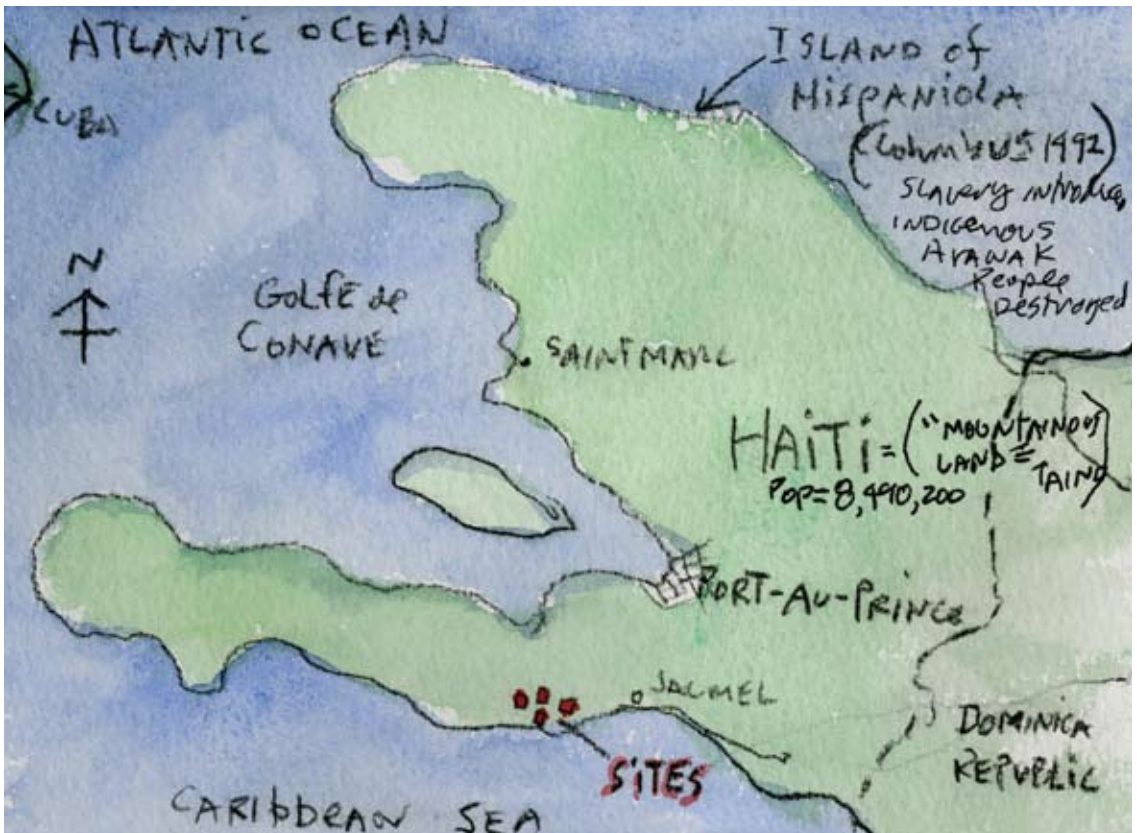 ATLANTIC OCEAN
CUBA
ISLAND of
HISPANIOLA
(Columbus 1492)
SLAVERY introduce,
INDIGENOUS
ARAWAK
People
Destroyed
N
GOLFE de
CONAVE
SAINT MARC
HAITI = ("MOUNTAINOUS
LAND =
TAINO)
POP = 8,490,200
PORT-AU-PRINCE
JACMEL
SITES
DOMINICA
REPUBLIC
CARIBBEAN SEA